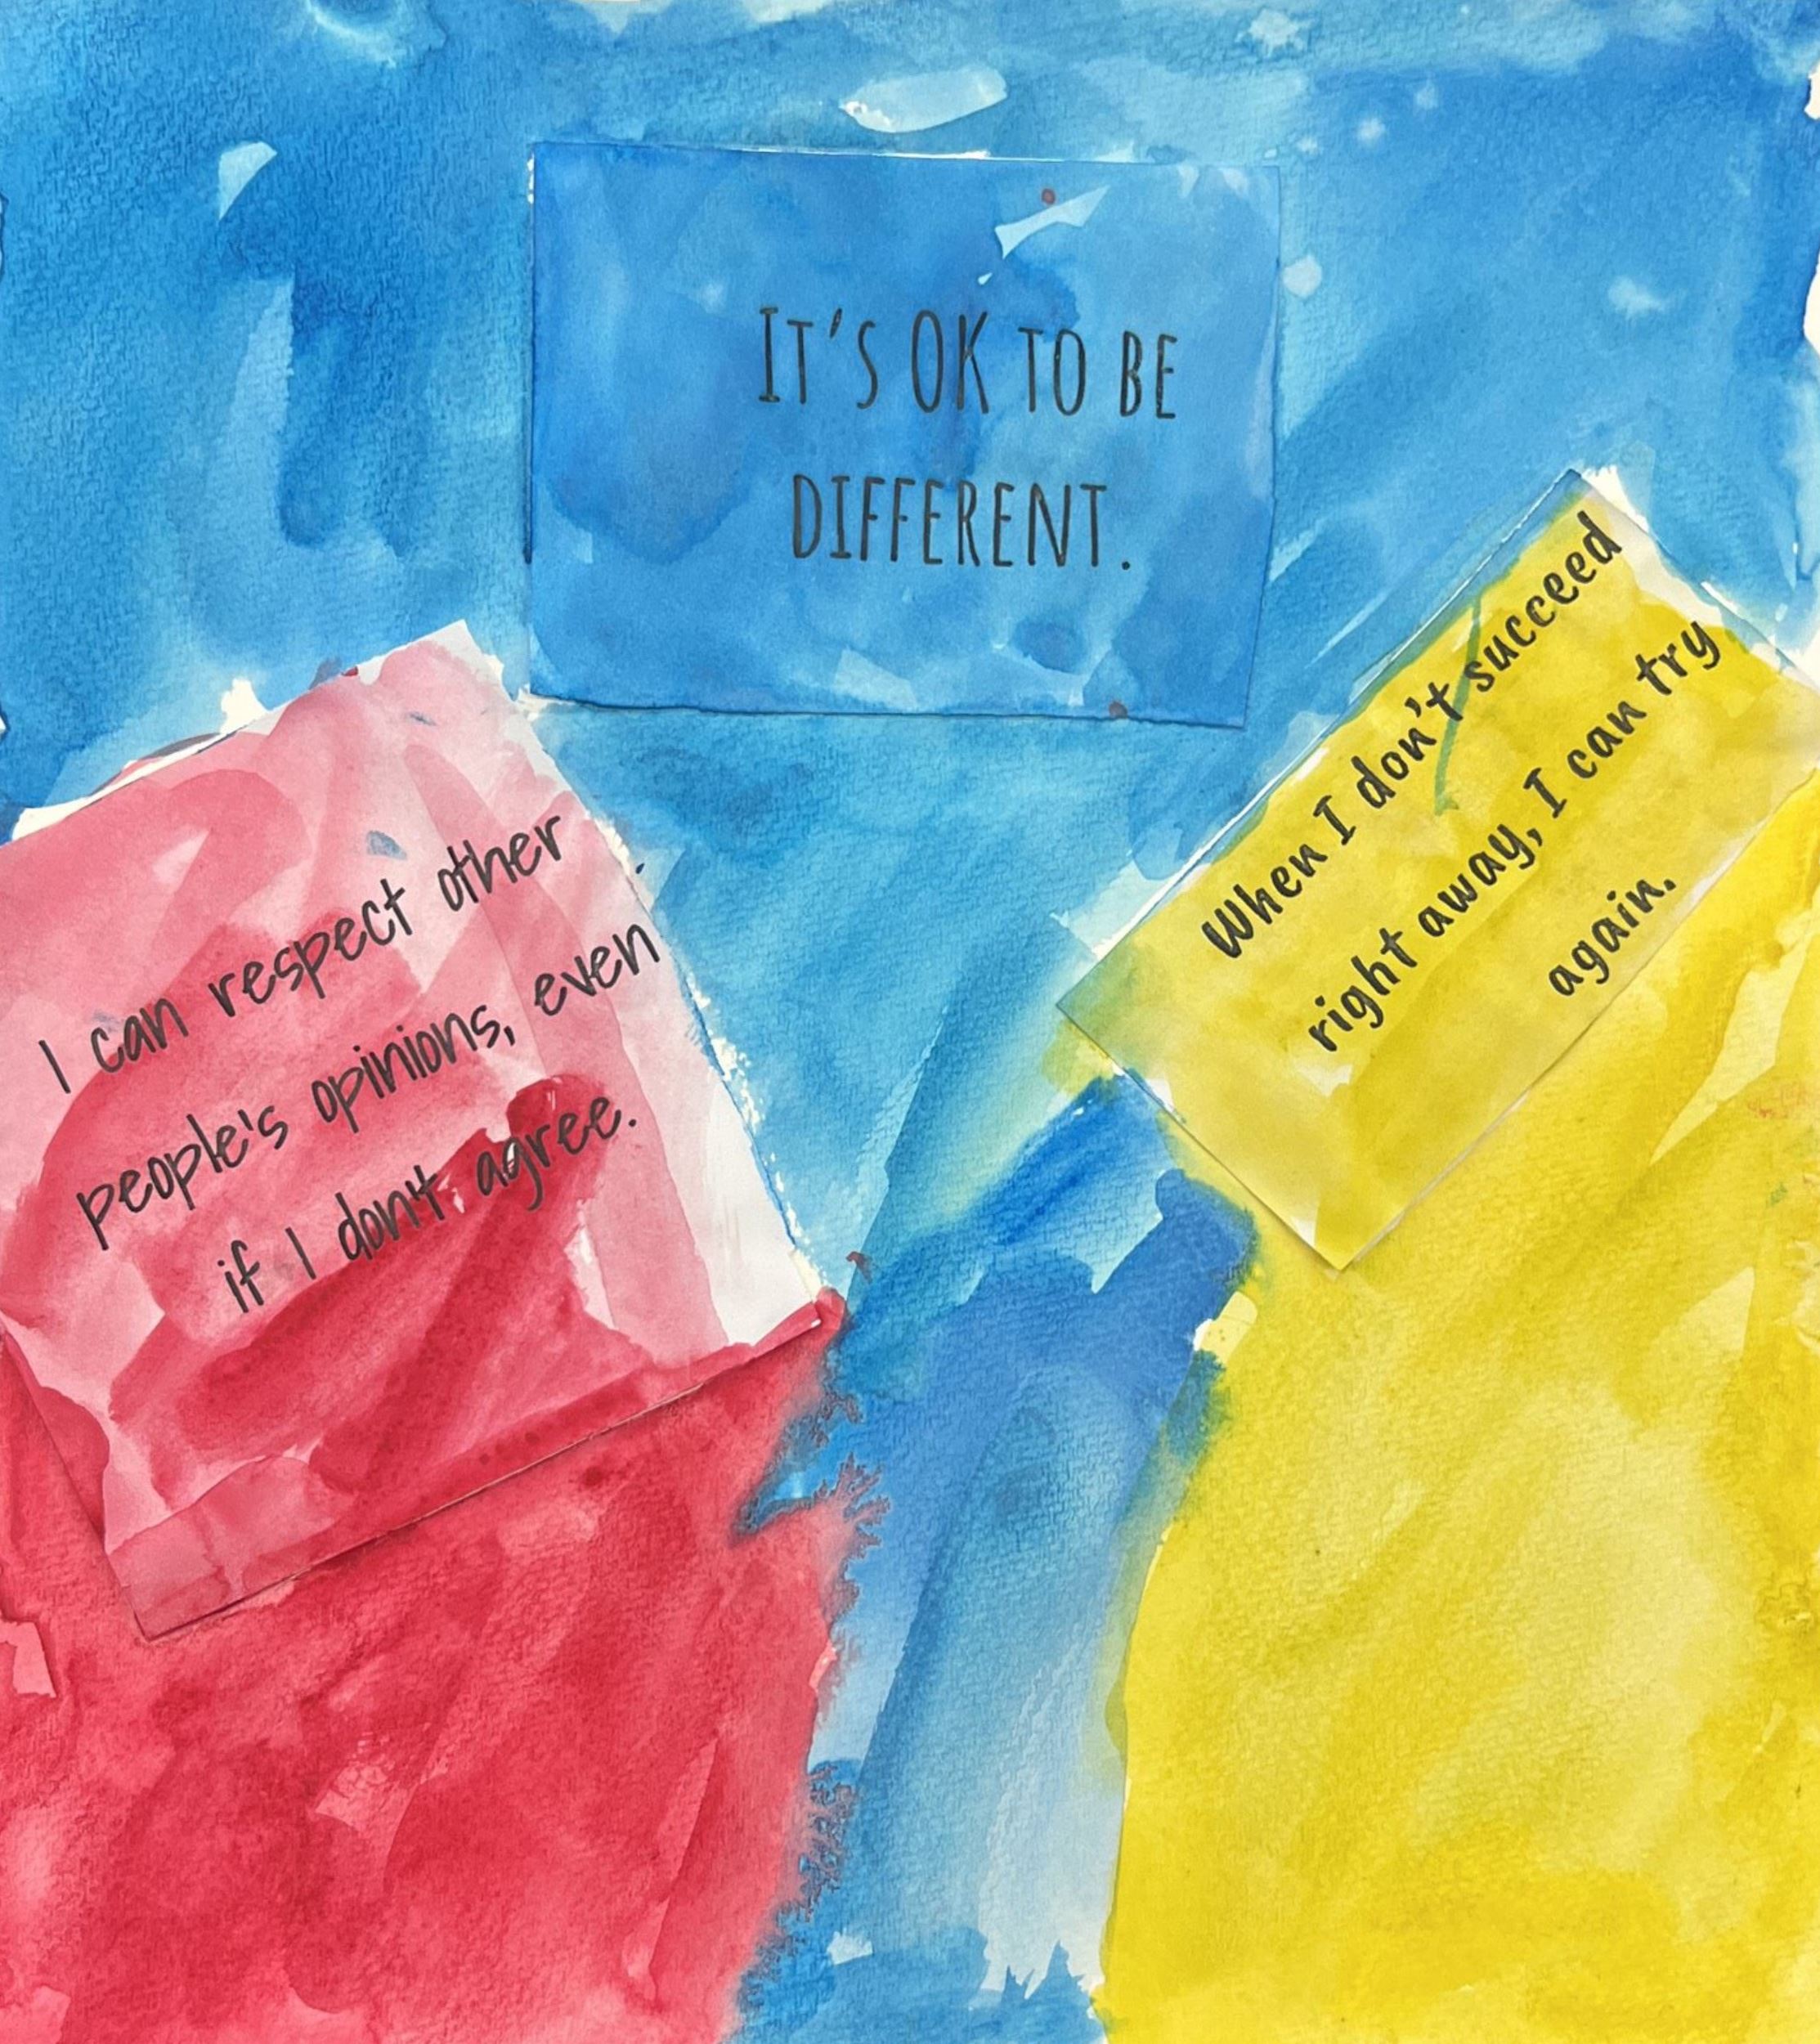 IT'S OK TO BE
DIFFERENT.
I can respect other
people's opinions, even
if I don't agree.
When I don't succeed
right away, I can try
again.